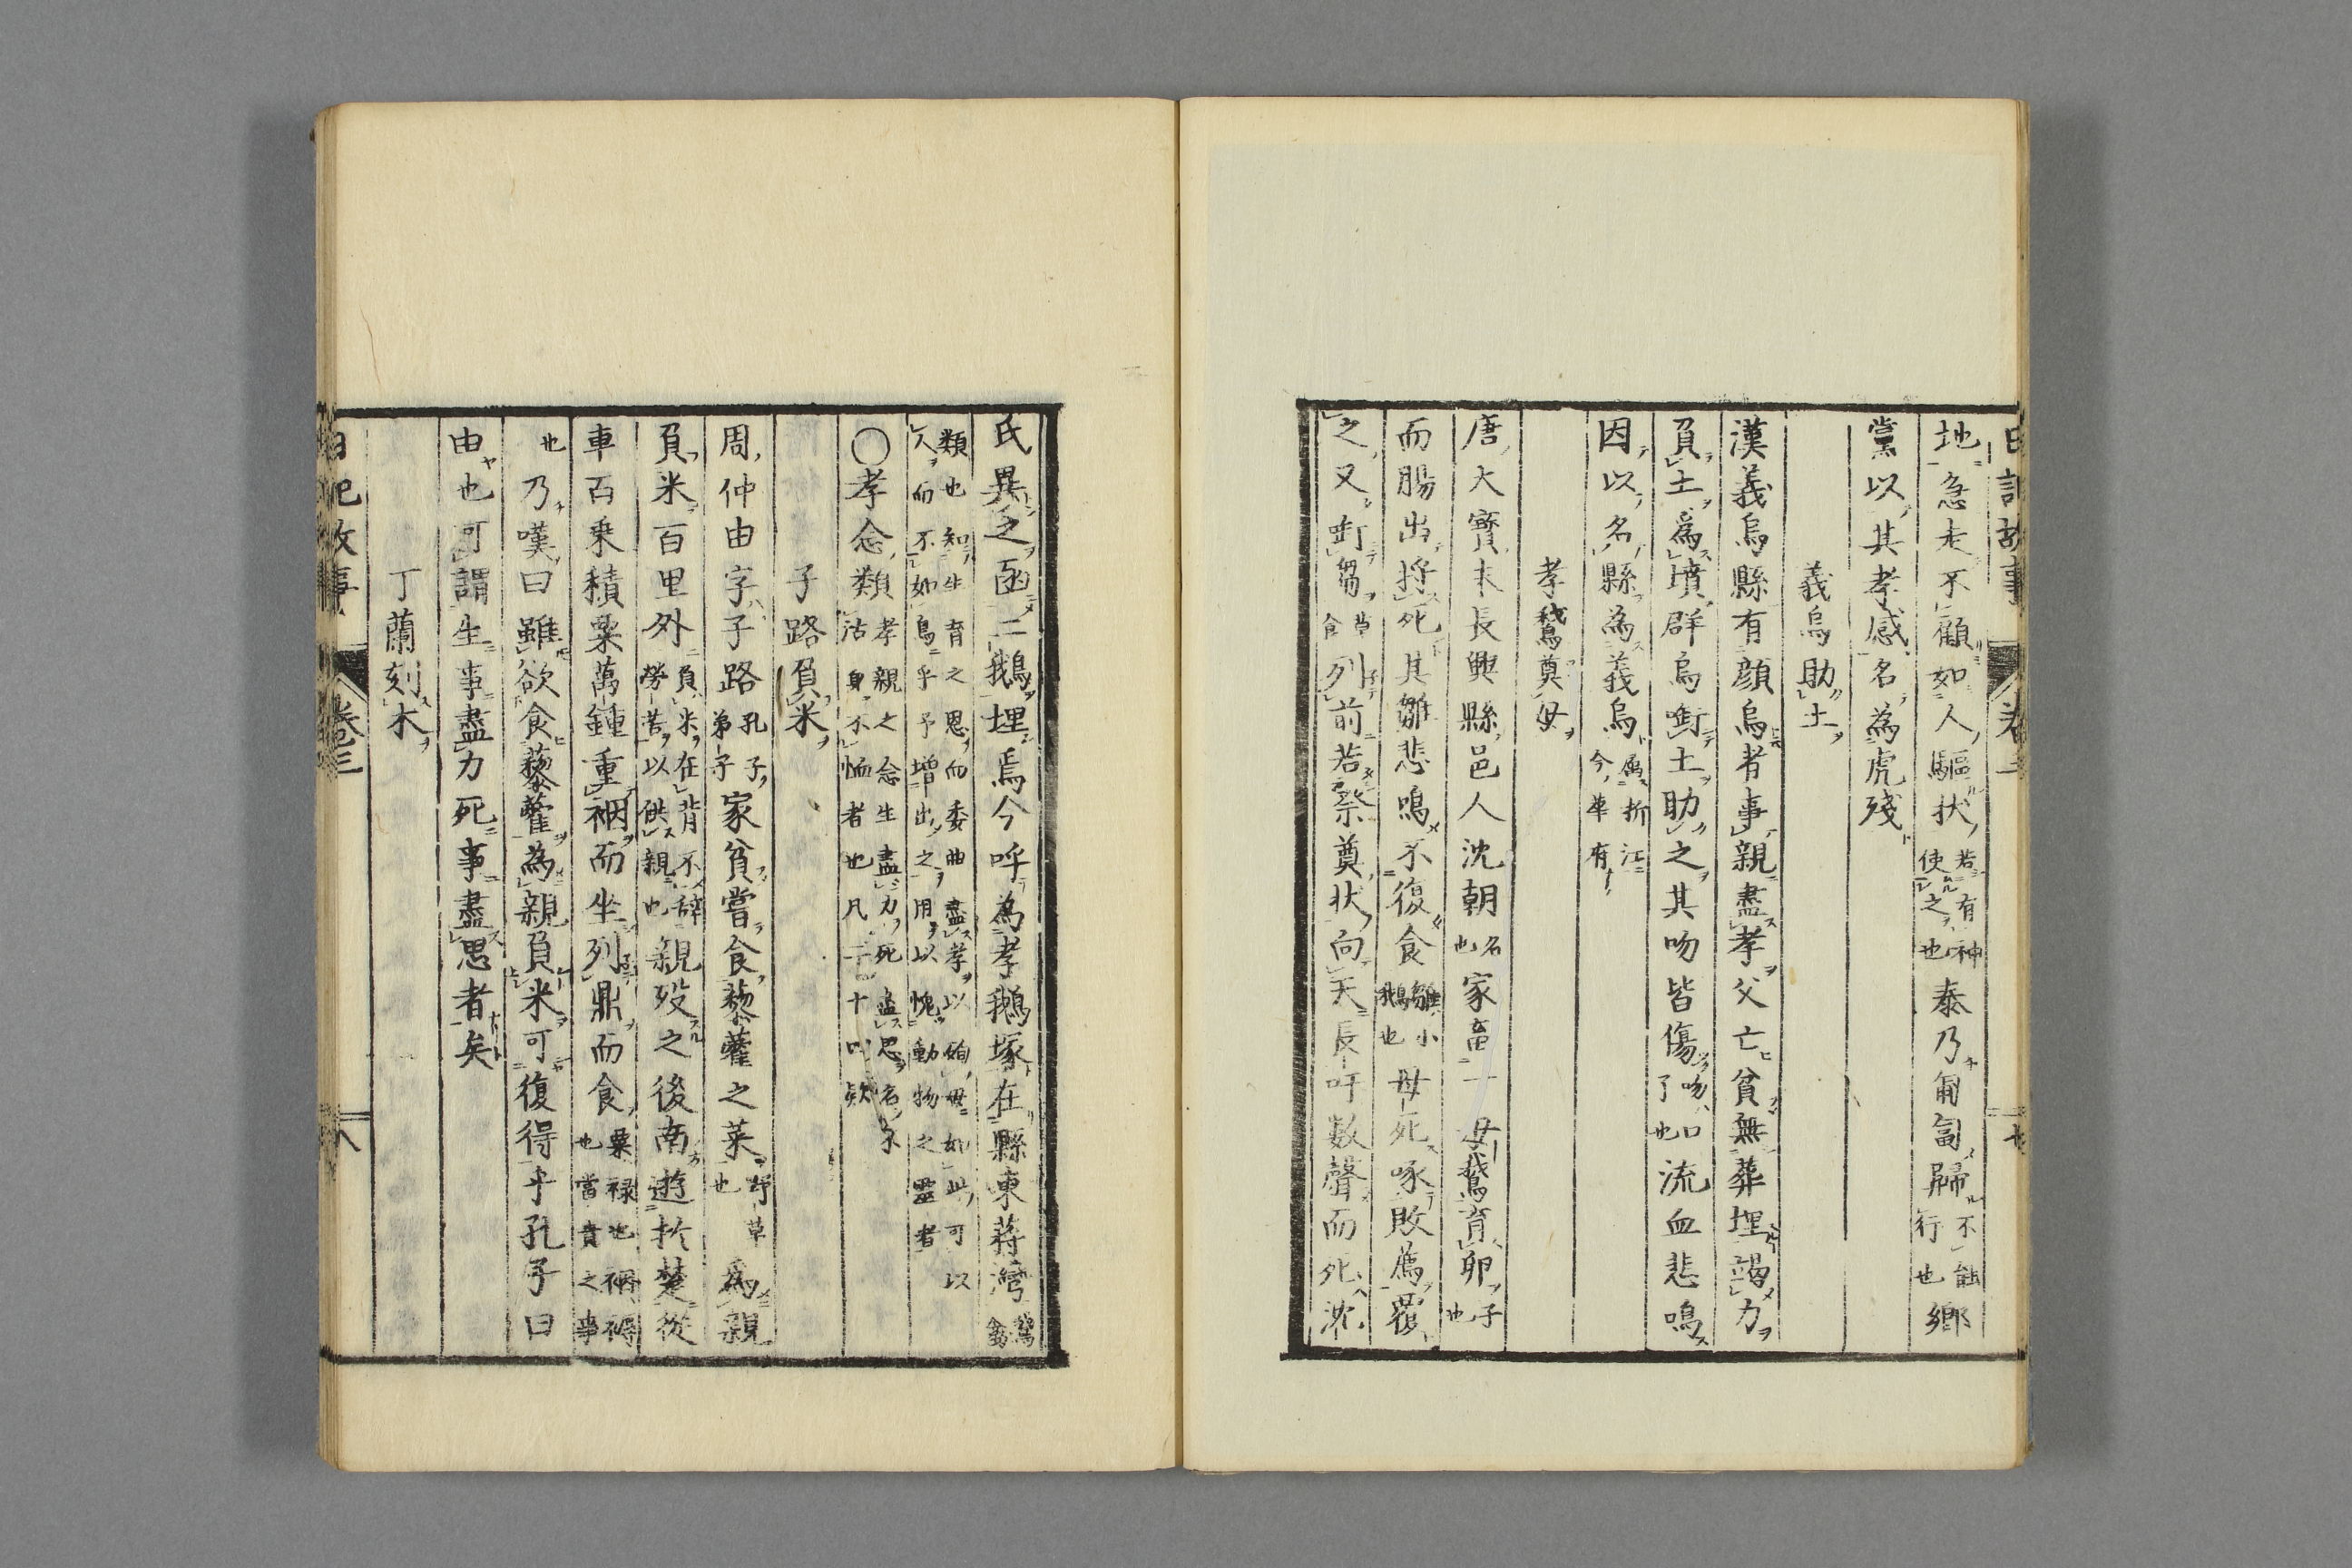 地急走不顧如人驅扶若有神使之也泰乃匍匐歸不能行也鄉
黨以其孝感名為虎殘
義烏助土
漢義烏縣有顔烏者事親盡孝父亡貧無葬埋竭力
負土為墳群烏啣土助之其吻皆傷吻口了也流血悲鳴
因以名縣為義烏屬折江今華有
孝鵞奠母
唐大寳末長興縣邑人沈朝名也家畜一母鵞育卵子也
而腸出將死其雛悲鳴不復食雛小鵝也母死啄敗薦覆
之又啣芻草食列前若祭奠狀向天長吁数聲而死沈
氏異之函二鵝埋焉今呼為孝鵝塚在縣東蔣灣
類也知生育之恩而委曲盡孝以殉母如此可以
人而不如烏乎予增出之用以愧動物之靈者
〇孝念類孝親之念生盡力死盡思名泉沽身不恤者也凡二十
子路負米
周仲由字子路孔子弟子家貧嘗食藜藿之菜野草也為親
負米百里外負米在背不辞勞苦以供親也親歿之後南遊於楚從
車百乗積粟萬鍾重裀而坐列鼎而食粟禄也裀褥也當貴之事
也乃嘆曰雖欲食藜藿為親負米可復得乎孔子曰
由也可謂生事盡力死事盡思者矣
丁蘭刻木
日記故事
卷三
八